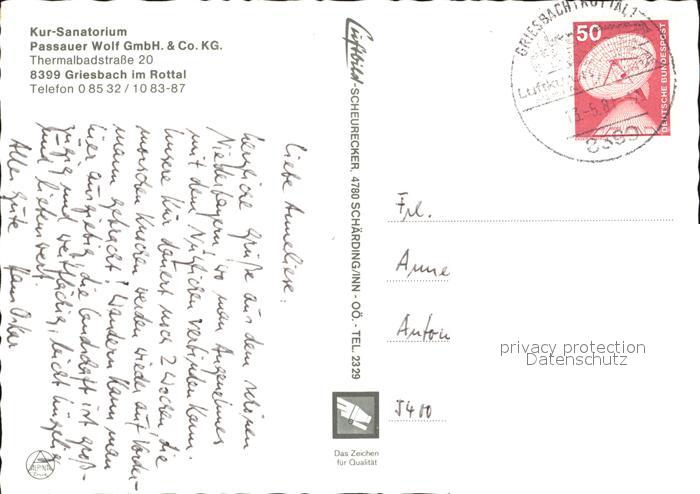 Kur-Sanatorium
Passauer Wolf GmbH. & Co. KG.
Thermalbadstraße 20
8399 Griesbach im Rottal
Telefon 0 85 32 / 10 83-87
Liebe Anneliese,
herzliche Grüße aus dem schönen
Niederbayern, wo man Angenehmes
mit dem Nützlichen verbinden kann.
Unsere Kur dauert noch 2 Wochen, die
morschen Knochen werden wieder auf Vorder-
mann gebracht! Wandern kann man
hier ausgiebig, die Landschaft ist groß-
zügig und weitflächig, leicht hügelig
und liebenswert.
Alles Gute
Luftbild-SCHEURECKER, 4780 SCHÄRDING/INN - OÖ. - TEL. 2329
GRIESBACH I ROTTAL 1
Luftku
13.-5.8
8399
50
DEUTSCHE BUNDESPOST
Frl.
Anne
Anton
5400
privacy protection
Datenschutz
Das Zeichen
für Qualität
ALPINA